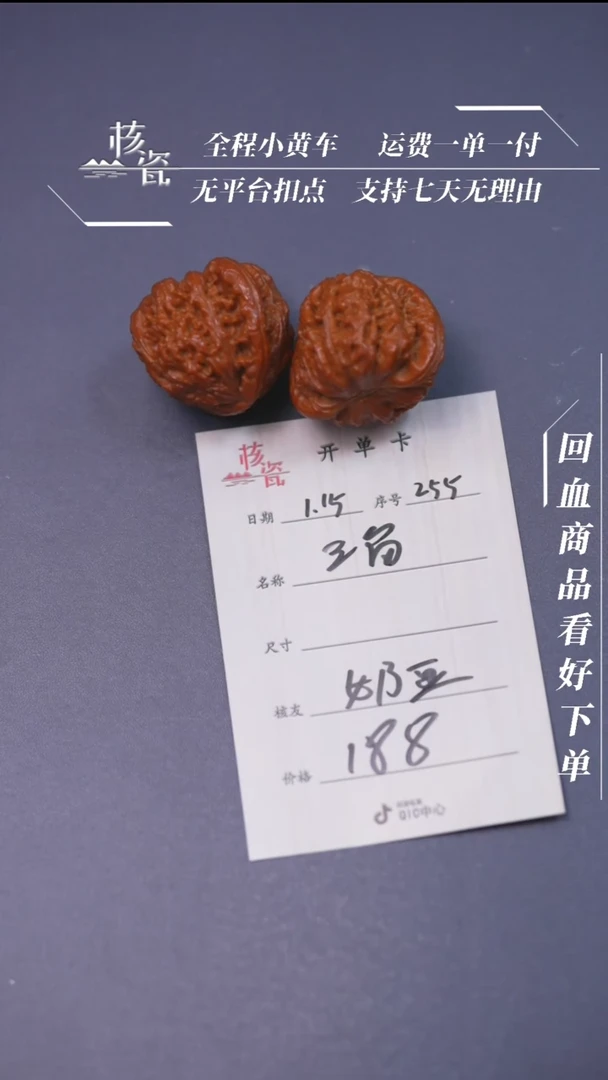 核瓷
全程小黄车 运费一单一付
无平台扣点 支持七天无理由
回血商品看好下单
核瓷
开单卡
日期 1.15 序号 255
名称
尺寸
核友 奶豆
价格 188
QIC中心